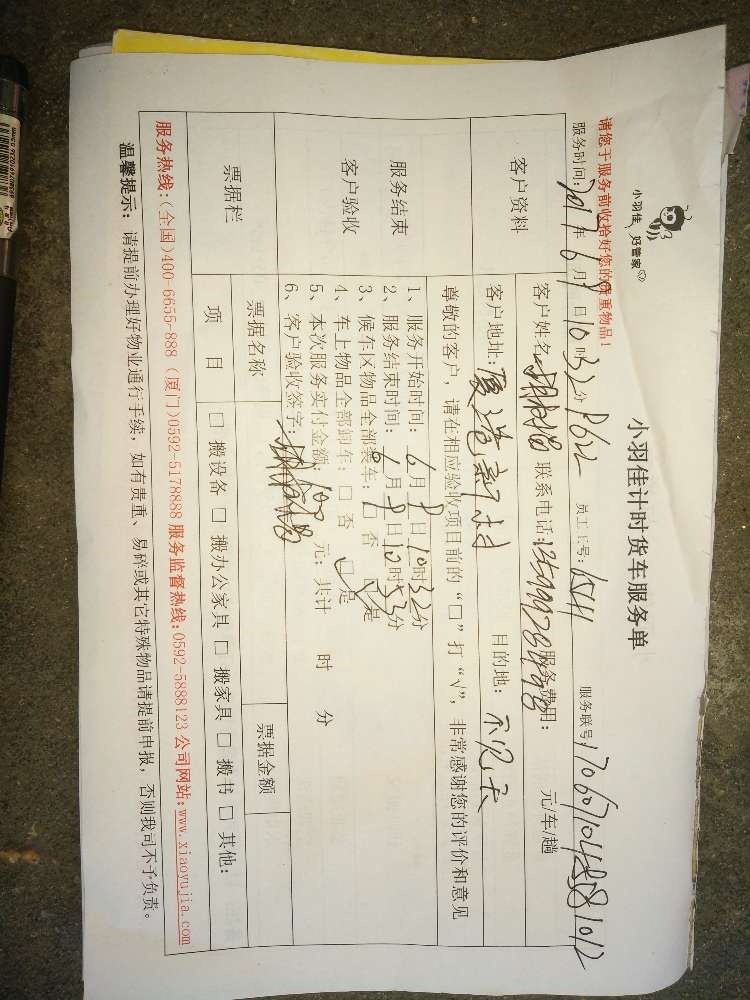 小羽佳 好管家
小羽佳计时货车服务单
请您于服务前收拾好您的贵重物品!
服务时间: 2017年6月9日10时32分 员工工号: 服务联号
客户资料
客户姓名 联系电话: 服务费用: 元/车/趟
客户地址: 厦造新村 目的地:
服务结束
客户验收
尊敬的客户,请在相应验收项目前的“□”打“√”,非常感谢您的评价和意见
1、服务开始时间: 6月9日10时32分
2、服务结束时间: 6月9日10时53分
3、候车区物品全部装车: □ 否 ☑ 是
4、车上物品全部卸车: □ 否 ☑ 是
5、本次服务实付金额: 100 元; 共计 时 分
6、客户验收签字:
票据栏
票据名称 票据金额
项 目 □ 搬设备 □ 搬办公家具 □ 搬家具 □ 搬书 □ 其他:
服务热线:(全国)400-6655-888 (厦门)0592-5178888 服务监督热线:0592-5888123 公司网站:www.xiaoyujia.com
温馨提示: 请提前办理好物业通行手续,如有贵重、易碎或其它特殊物品请提前申报,否则我司不予负责。